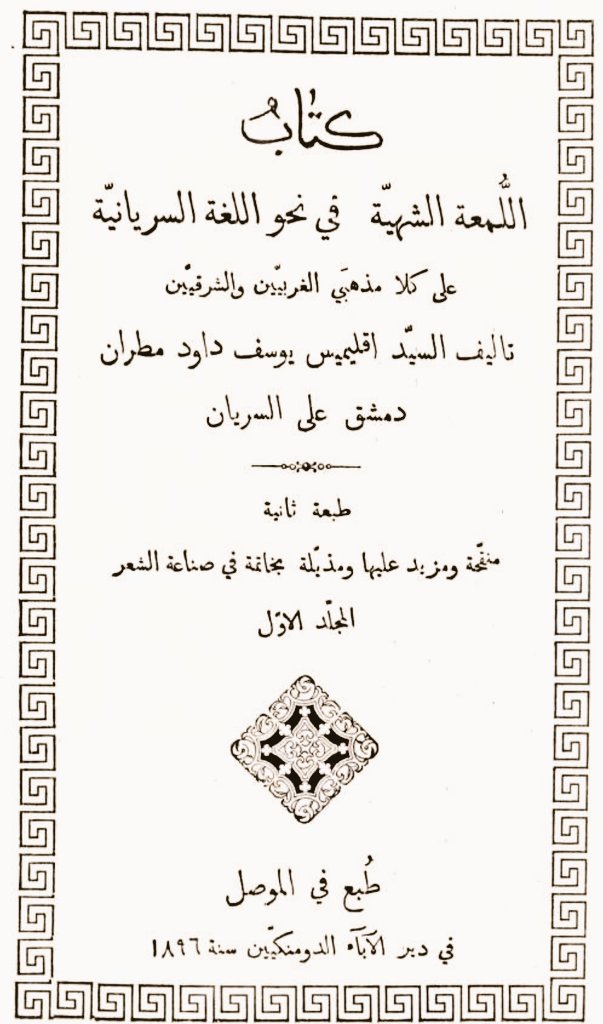 كتابُ
اللُّمعة الشهيّة في نحو اللغة السريانيّة
على كلا مذهبَي الغربيّين والشرقيّين
تاليف السيّد اقليميس يوسف داود مطران
دمشق على السريان
طبعة ثانية
منقّحة ومزيد عليها ومذيّلة بخاتمة في صناعة الشعر
المجلّد الاوّل
طُبع في الموصل
في دير الآباء الدومنكيّين سنة ١٨٩٦